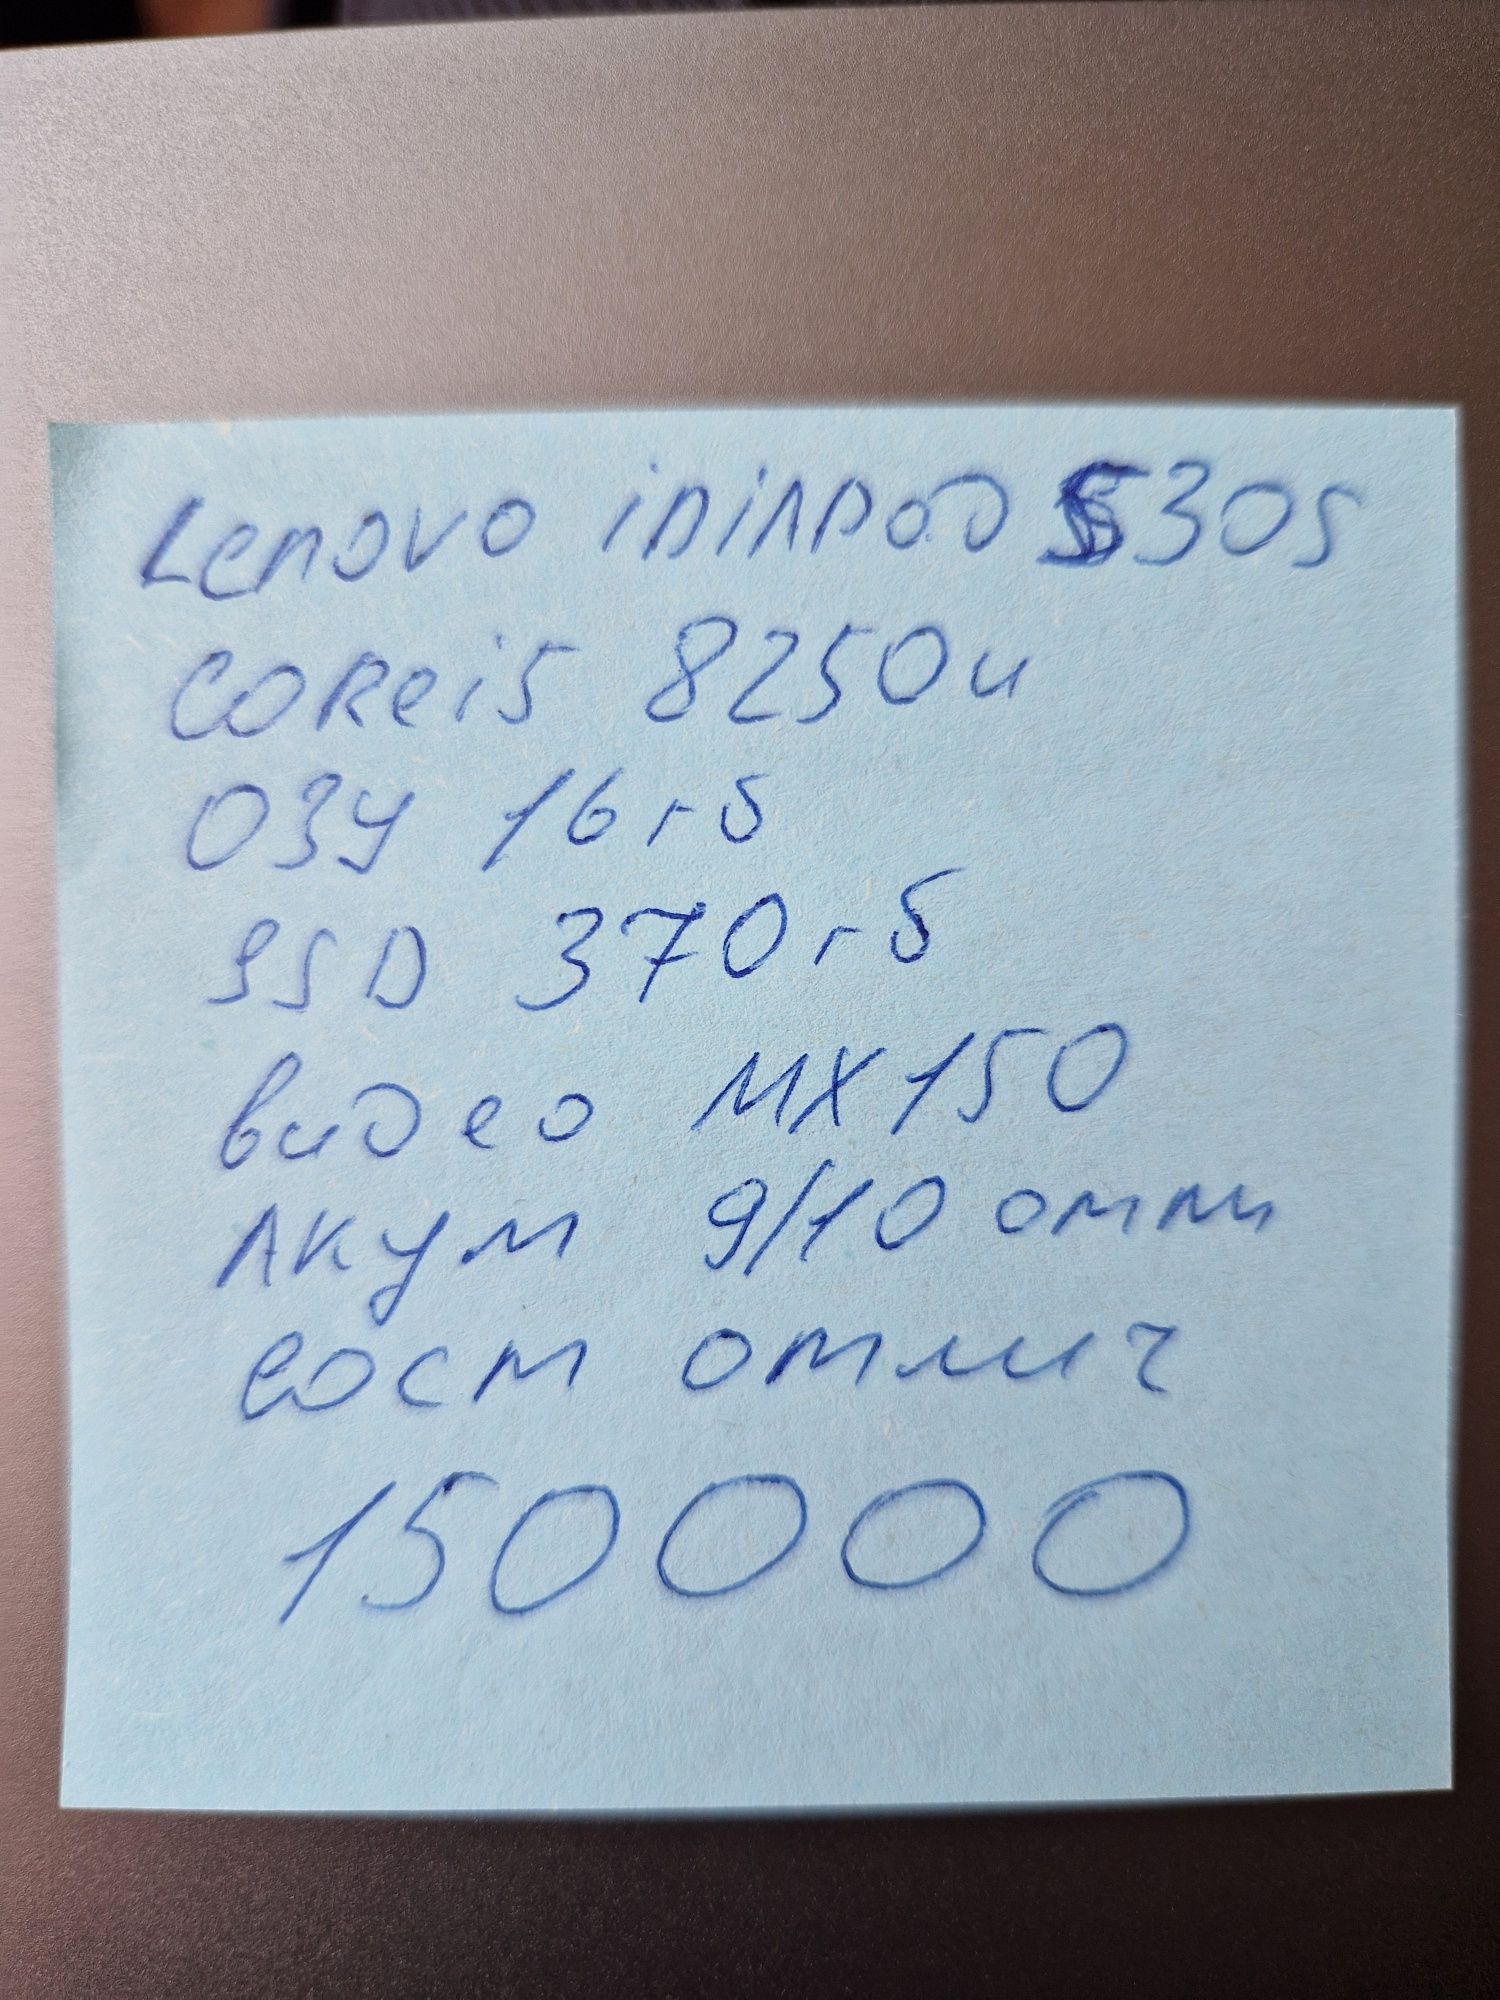 Lenovo iDiAPad 530s
CORei5 8250u
ОЗУ 16 гб
SSD 370 гб
видео MX150
Акум 9/10 отли
сост отлич
150000